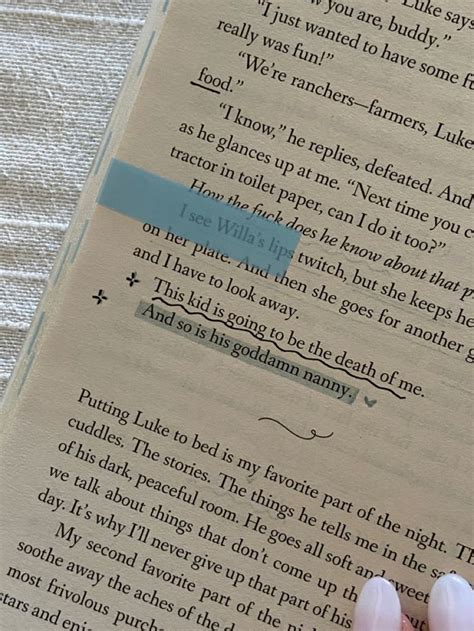 w you are, buddy."
Luke says
"I just wanted to have some f
really was fun!"
"We're ranchers—farmers, Luke
food."
"I know," he replies, defeated. And
as he glances up at me. "Next time you c
tractor in toilet paper, can I do it too?"
How the fuck does he know about that p
I see Willa's lips twitch, but she keeps he
on her plate. And then she goes for another g
and I have to look away.
This kid is going to be the death of me.
And so is his goddamn nanny.
Putting Luke to bed is my favorite part of the night. Th
cuddles. The stories. The things he tells me in the sa
of his dark, peaceful room. He goes all soft and sweet
we talk about things that don't come up th
day. It's why I'll never give up that part of his
My second favorite part of the n
soothe away the aches of the d
most frivolous purch
stars and enj